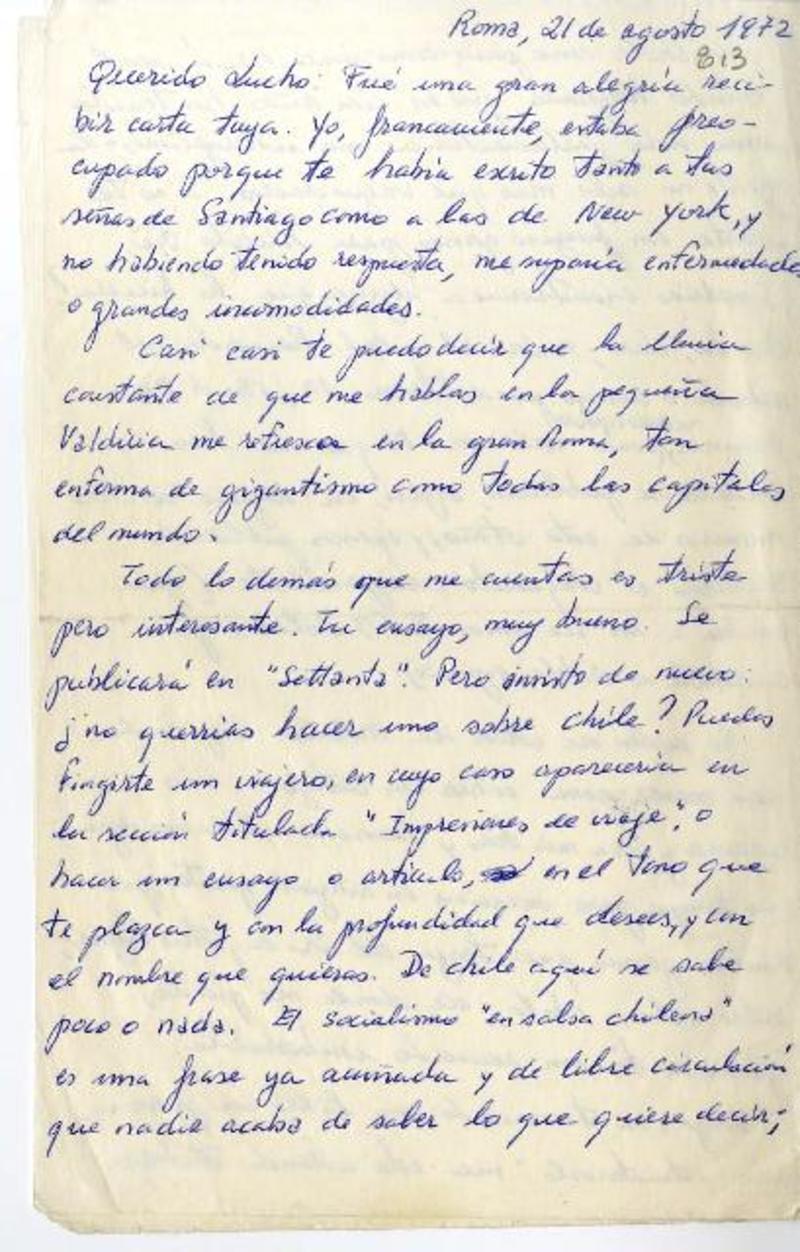 Roma, 21 de agosto 1972
813
Querido Lucho: Fué una gran alegría reci-
bir carta tuya. Yo, francamente, estaba preo-
cupado porque te había escrito tanto a tus
señas de Santiago como a las de New York, y
no habiendo tenido respuesta, me suponía enfermedades
o grandes incomodidades.
Casi casi te puedo decir que la lluvia
constante de que me hablas en la pequeña
Valdivia me refresca en la gran Roma, tan
enferma de gigantismo como todas las capitales
del mundo.
Todo lo demás que me cuentas es triste
pero interesante. Tu ensayo, muy bueno. Se
publicará en "Settanta". Pero insisto de nuevo:
¿no querrías hacer uno sobre Chile? Puedes
fingirte un viajero, en cuyo caso aparecería en
la sección titulada "Impresiones de viaje", o
hacer un ensayo o artículo, en el tono que
te plazca y con la profundidad que desees, y con
el nombre que quieras. De Chile aquí se sabe
poco o nada. El socialismo "en salsa chilena"
es una frase ya acuñada y de libre circulación
que nadie acaba de saber lo que quiere decir;